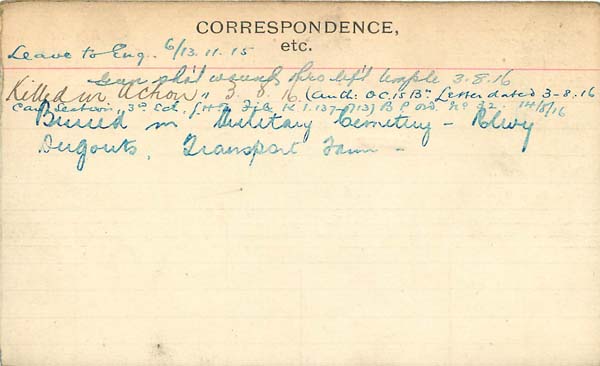 CORRESPONDENCE,
etc.
Leave to Eng. 6/13.11.15
Gun shot wound thro left temple 3-8-16
Killed in Action " 3. 8. 16 (Auth: O.C. 15 Bn Letter dated 3-8-16
Can. Section, 3rd Ech. B.P. ord. No 32. 14/8/16
Buried in Military Cemetery - Rlwy
Dugouts, Transport Farm -